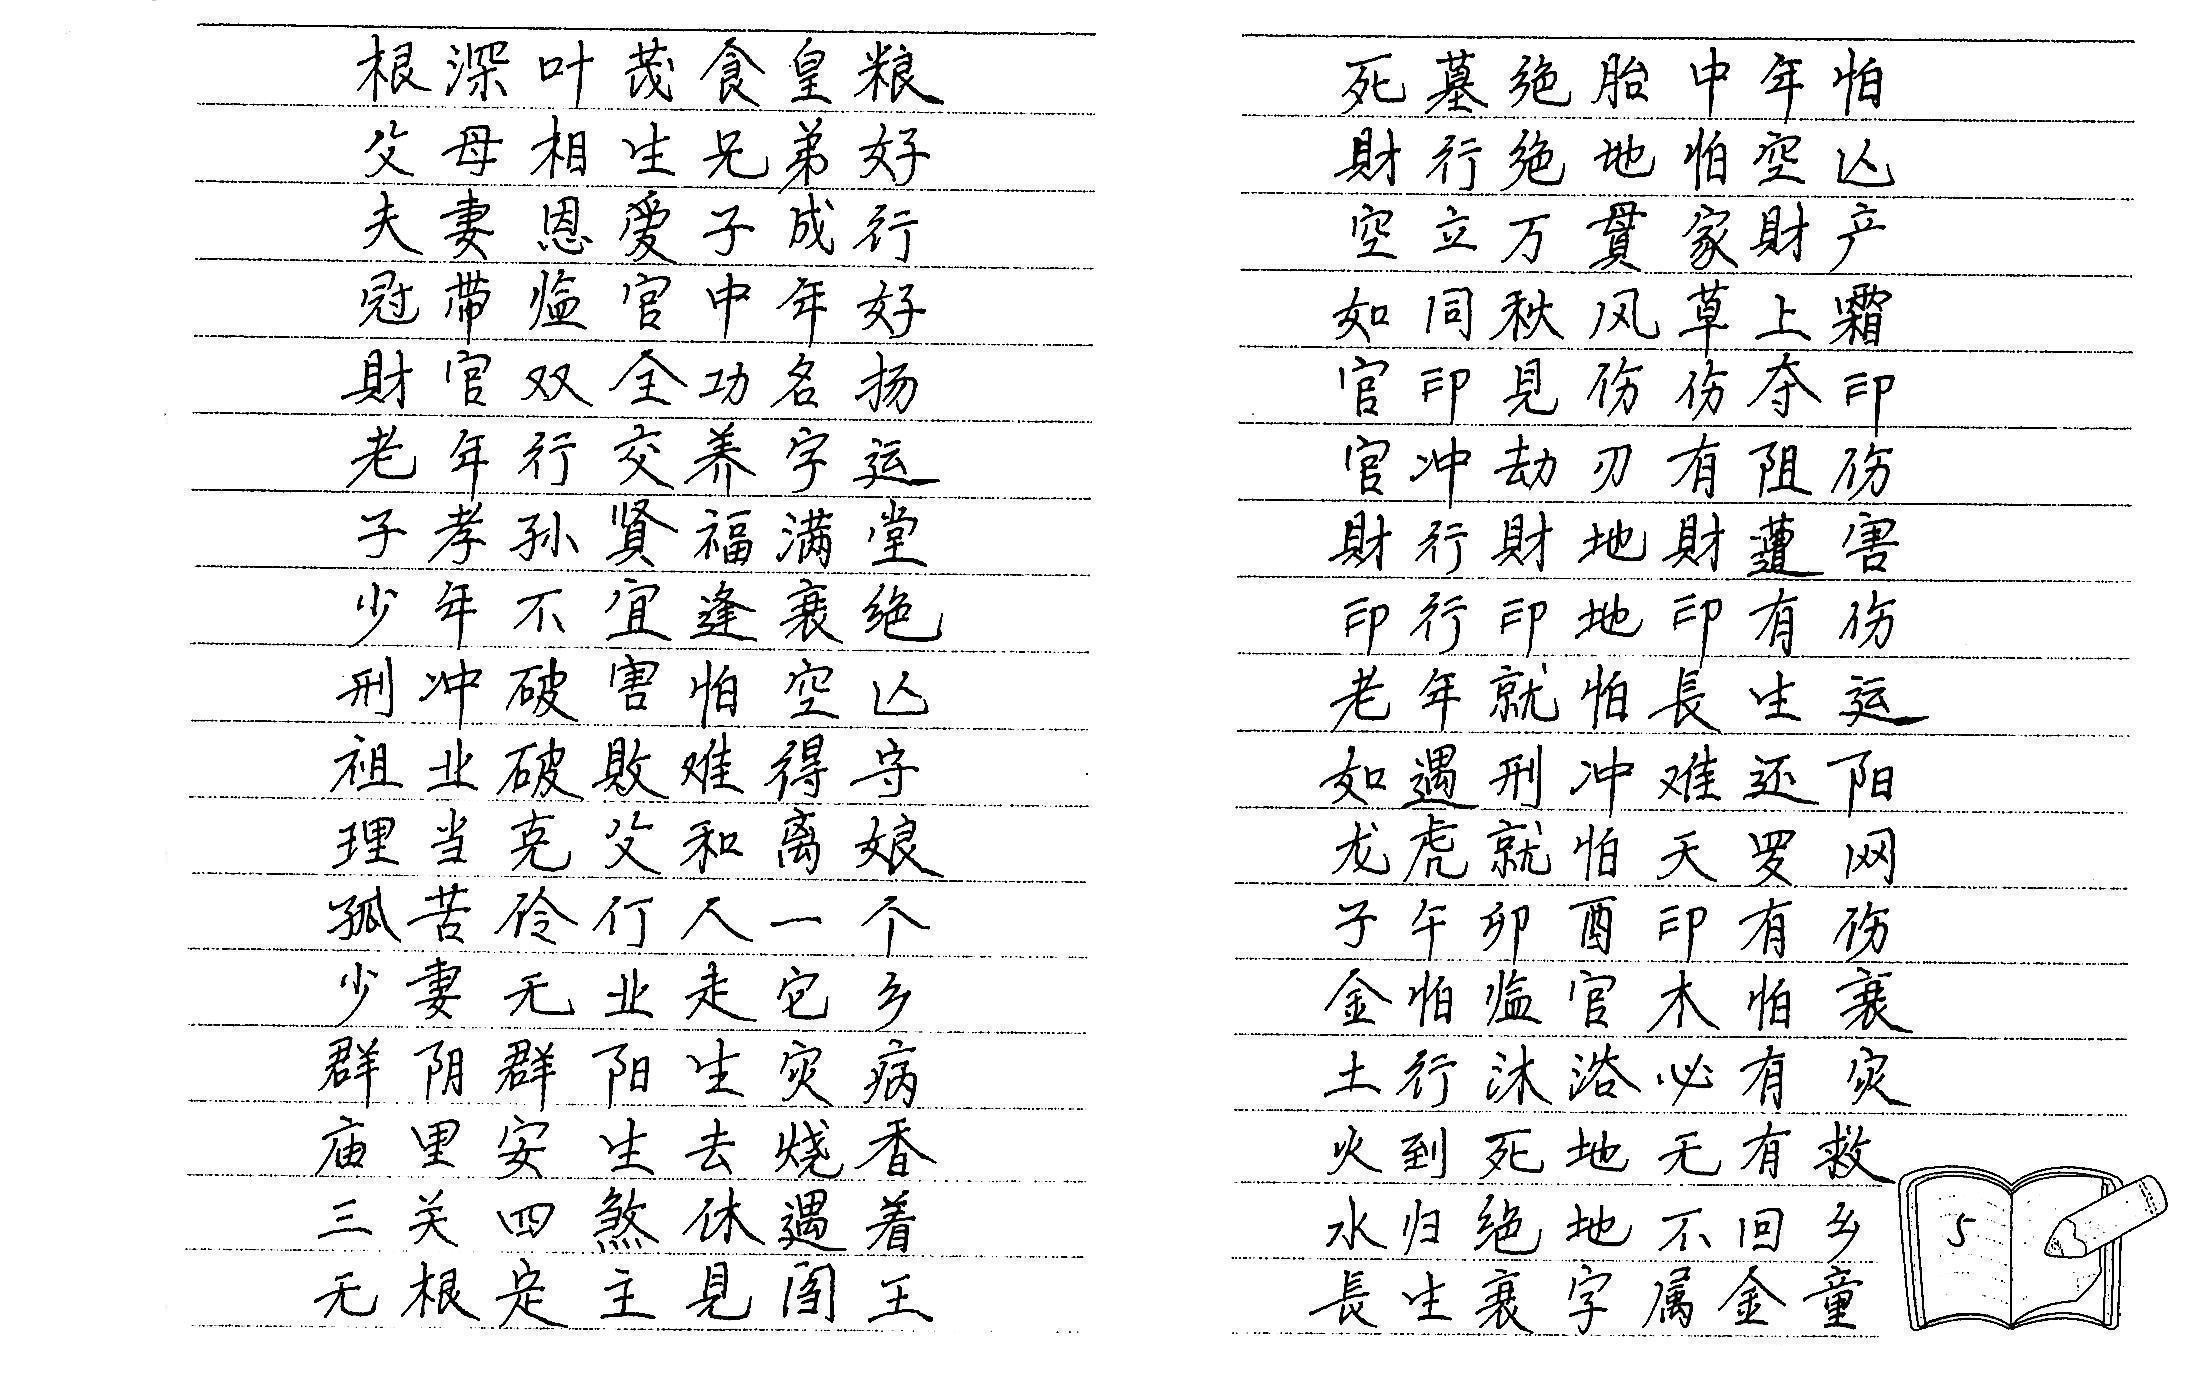 根深叶茂食皇粮
父母相生兄弟好
夫妻恩爱子成行
冠带临官中年好
財官双全功名扬
老年行交养字运
子孝孙贤福满堂
少年不宜逢衰绝
刑冲破害怕空亡
祖业破敗难得守
理当克父和离娘
孤苦伶仃人一个
少妻无业走它乡
群阴群阳生灾病
庙里安生去烧香
三关四煞休遇着
无根定主見阎王
死墓绝胎中年怕
財行绝地怕空亡
空立万貫家財产
如同秋风草上霜
官印見伤伤夺印
官冲劫刃有阻伤
財行財地財遭害
印行印地印有伤
老年就怕長生运
如遇刑冲难还阳
龙虎就怕天罗网
子午卯酉印有伤
金怕临官木怕衰
土行沐浴必有灾
火到死地无有救
水归绝地不回乡
長生衰字属金童
5